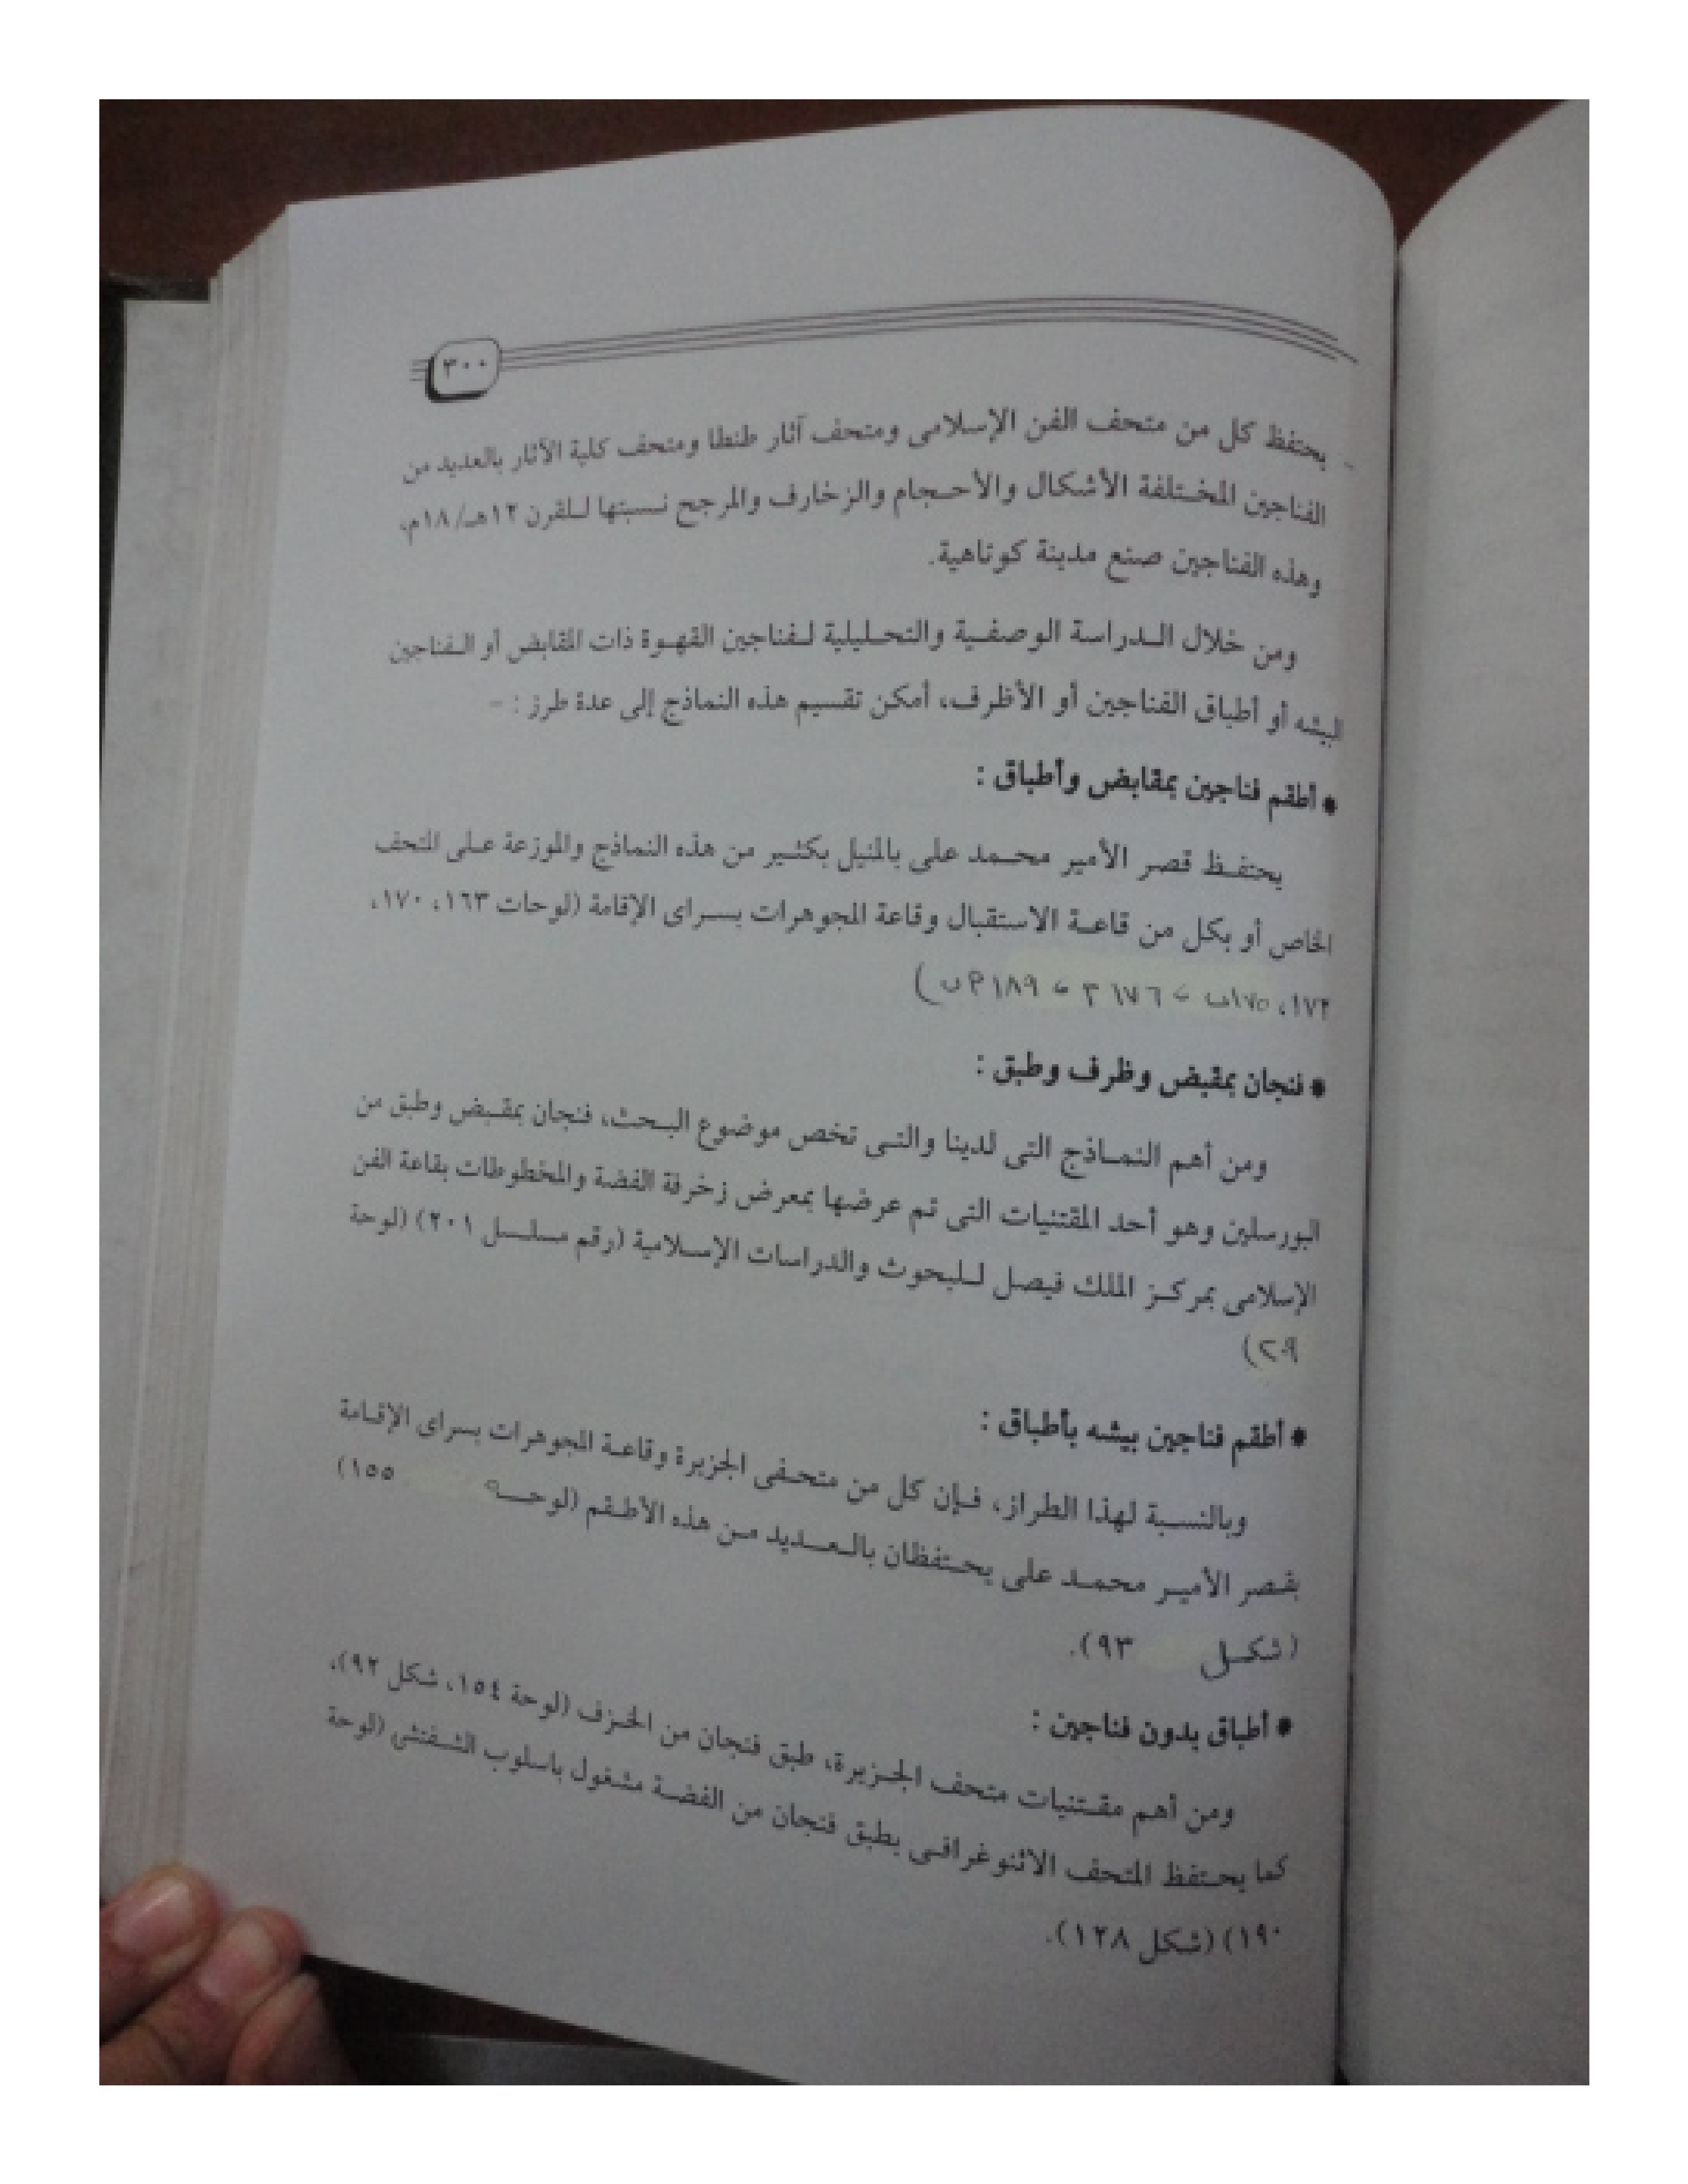 ٣٠٠
- يحتفظ كل من متحف الفن الإسلامى ومتحف آثار طنطا ومتحف كلية الآثار بالعديد من
الفناجين المختلفة الأشكال والأحجام والزخارف والمرجح نسبتها للقرن ١٢هـ/١٨م،
وهذه الفناجين صنع مدينة كوتاهية.
ومن خلال الدراسة الوصفية والتحليلية لفناجين القهوة ذات المقابض أو الفناجين
البيشه أو أطباق الفناجين أو الأظرف، أمكن تقسيم هذه النماذج إلى عدة طرز : -
* أطقم فناجين بمقابض وأطباق :
يحتفظ قصر الأمير محمد على بالمنيل بكثير من هذه النماذج والموزعة على المتحف
الخاص أو بكل من قاعة الاستقبال وقاعة المجوهرات بسراى الإقامة (لوحات ١٦٣، ١٧٠،
١٧٢، ١٧٥ب، ١٧٦، ١٨٩)
* فنجان بمقبض وظرف وطبق :
ومن أهم النماذج التى لدينا والتى تخص موضوع البحث، فنجان بمقبض وطبق من
البورسلين وهو أحد المقتنيات التى تم عرضها بمعرض زخرفة الفضة والمخطوطات بقاعة الفن
الإسلامى بمركز الملك فيصل للبحوث والدراسات الإسلامية (رقم مسلسل ٢٠١) (لوحة
٢٠٩)
* أطقم فناجين بيشه بأطباق :
وبالنسبة لهذا الطراز، فإن كل من متحفى الجزيرة وقاعة المجوهرات بسراى الإقامة
بقصر الأمير محمد على يحتفظان بالعديد من هذه الأطقم (لوحة ١٥٥)
(شكل ٩٣).
* أطباق بدون فناجين :
ومن أهم مقتنيات متحف الجزيرة، طبق فنجان من الخزف (لوحة ١٥٤، شكل ٩٢)،
كما يحتفظ المتحف الاثنوغرافى بطبق فنجان من الفضة مشغول باسلوب الشفتشى (لوحة
١٩٠) (شكل ١٢٨).